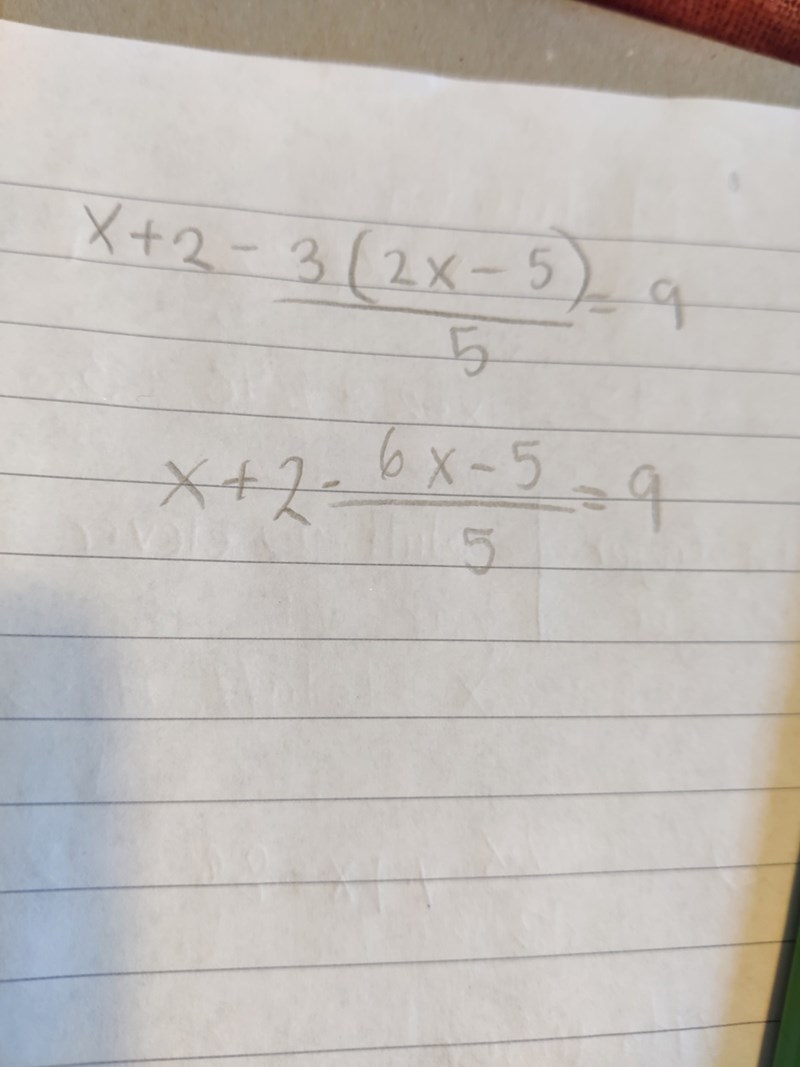 x+2-3(2x-5)/5=9
x+2-6x-5/5=9